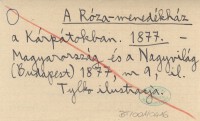 A Róza-menedékház
a Kárpátokban. 1877. -
Magyarország és a Nagyvilág
(Budapest) 1877, nr 9, il.
Tylko ilustracja.